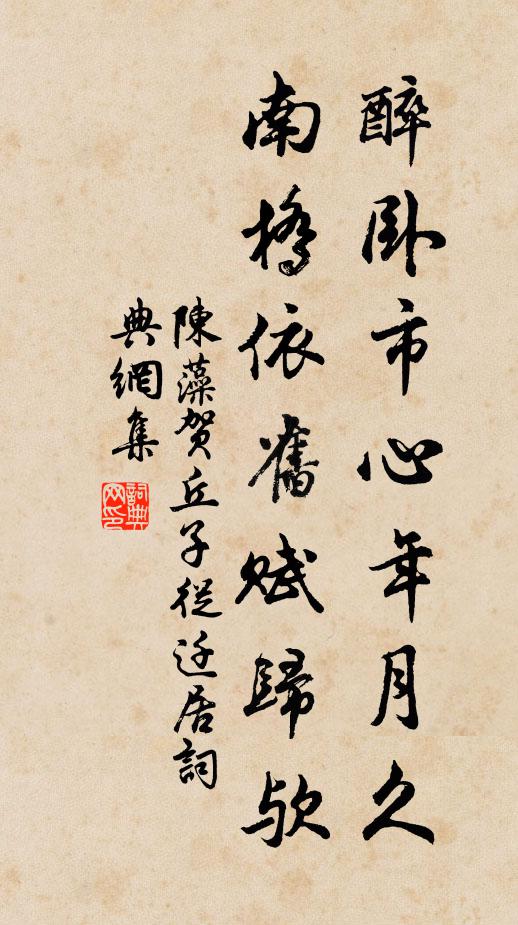 醉卧市心年月久
南橋依舊賦歸歟
陳藻賀丘子從迁居詞
典網集
詞典
网印